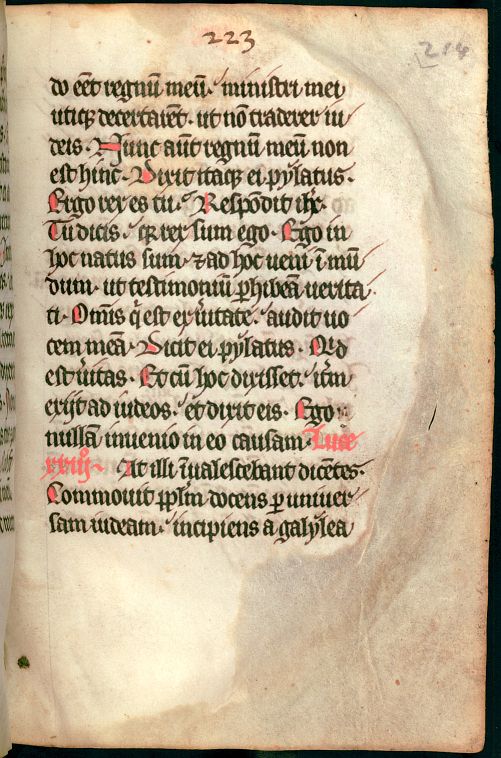 223
214
do eēt regnū meū. ministri mei
utiqꝫ decertarēt. ut nō traderer iu
deis. Nunc aūt regnū meū non
est hinc. Dixit itaqꝫ ei pylatus.
Ergo rex es tu. Respōdit ihc̄.
Tu dicis. qꝛ rex sum ego. Ego in
hoc natus sum. ⁊ ad hoc ueni ī mū
dum. ut testimoniū ꝑhibeā uerita
ti. Omīs q̄ est ex ūitate. audit uo
cem meā. Dicit ei pylatus. Qͥd
est ūitas. Et cū hoc dixisset. itm̄
exijt ad iudeos. et dixit eis. Ego
nullā inuenio in eo causam. Luce
xxiij. At illi īualescebant dicētes.
Commouit ppl̄m docens per uniuer
sam iudeam. incipiens a galylea